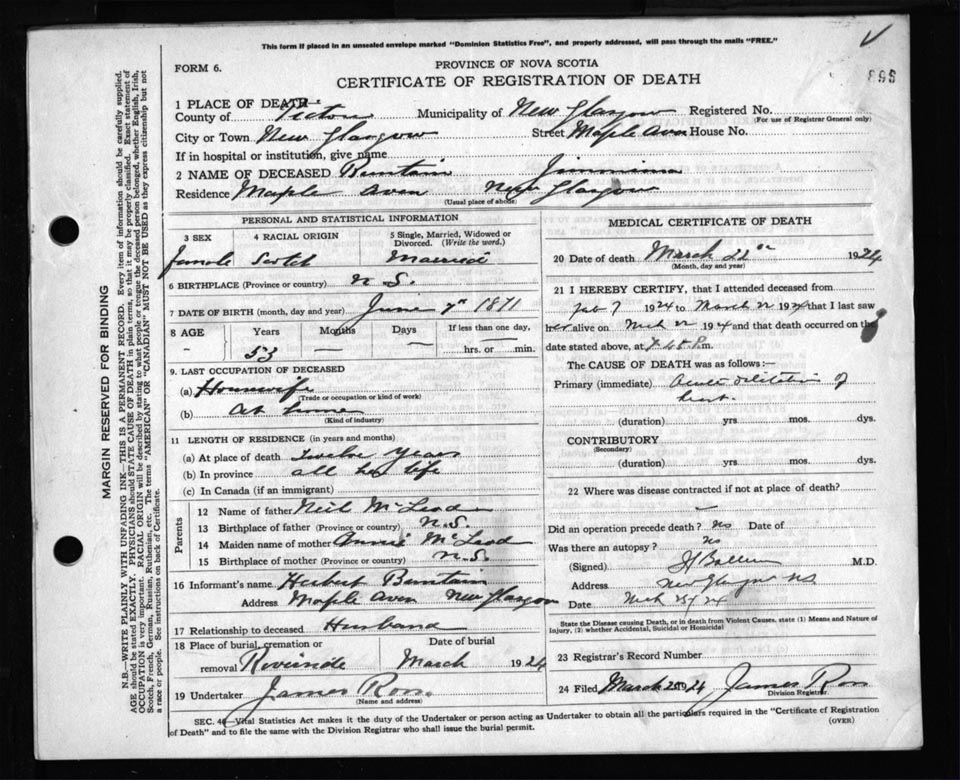 This form if placed in an unsealed envelope marked "Dominion Statistics Free", and properly addressed, will pass through the mails "FREE."
FORM 6.
PROVINCE OF NOVA SCOTIA
CERTIFICATE OF REGISTRATION OF DEATH
1 PLACE OF DEATH—
County of Pictou Municipality of New Glasgow Registered No.
(For use of Registrar General only)
City or Town New Glasgow Street Maple Aven House No.
If in hospital or institution, give name
2 NAME OF DECEASED Buntain Jimmima
Residence Maple Aven New Glasgow
(Usual place of abode)
PERSONAL AND STATISTICAL INFORMATION
3 SEX 4 RACIAL ORIGIN 5 Single, Married, Widowed or Divorced. (Write the word.)
female Scotch Married
6 BIRTHPLACE (Province or country) N.S.
7 DATE OF BIRTH (month, day and year) June 7th 1871
8 AGE Years Months Days If less than one day
– 53 — — hrs. or min.
9. LAST OCCUPATION OF DECEASED
(a) Housewife
(Trade or occupation or kind of work)
(b) At home
(Kind of industry)
11 LENGTH OF RESIDENCE (in years and months)
(a) At place of death Twelve years
(b) In province all her life
(c) In Canada (if an immigrant)
Parents
12 Name of father Neil McLeod
13 Birthplace of father (Province or country) N.S.
14 Maiden name of mother Annie McLeod
15 Birthplace of mother (Province or country) N.S.
16 Informant's name Herbert Buntain
Address Maple Aven New Glasgow
17 Relationship to deceased Husband
18 Place of burial, cremation or removal Riverside
Date of burial March 1924
19 Undertaker James Ross
(Name and address)
MEDICAL CERTIFICATE OF DEATH
20 Date of death March 22nd 1924
(Month, day and year)
21 I HEREBY CERTIFY, that I attended deceased from
Feb 7 1924 to March 22 1924 that I last saw
her alive on Mch 22 1924 and that death occurred on the
date stated above, at 7.45 P.m.
The CAUSE OF DEATH was as follows:—
Primary (immediate) Acute dilitation of
heart.
(duration) yrs. mos. dys.
CONTRIBUTORY
(Secondary)
(duration) yrs. mos. dys.
22 Where was disease contracted if not at place of death?
Did an operation precede death? No Date of
Was there an autopsy? No
(Signed) M.D.
Address New Glasgow NS
Date Mch 24
State the Disease causing Death, or in death from Violent Causes, state (1) Means and Nature of Injury, (2) whether Accidental, Suicidal or Homicidal
23 Registrar's Record Number
24 Filed March 25 1924 James Ross
Division Registrar
SEC. 40—Vital Statistics Act makes it the duty of the Undertaker or person acting as Undertaker to obtain all the particulars required in the "Certificate of Registration
of Death" and to file the same with the Division Registrar who shall issue the burial permit. (OVER)
MARGIN RESERVED FOR BINDING
N.B.—WRITE PLAINLY WITH UNFADING INK—THIS IS A PERMANENT RECORD. Every item of information should be carefully supplied.
AGE should be stated EXACTLY. PHYSICIANS should STATE CAUSE OF DEATH in plain terms, so that it may be properly classified. Exact statement of
OCCUPATION is very important. RACIAL ORIGIN will be described by stating to what people or tongue the deceased person belonged, whether English, Irish,
Scotch, French, German, Russian, Ruthenian, etc. The terms "AMERICAN" OR "CANADIAN" MUST NOT BE USED as they express citizenship but not
a race or people. See instructions on back of Certificate.